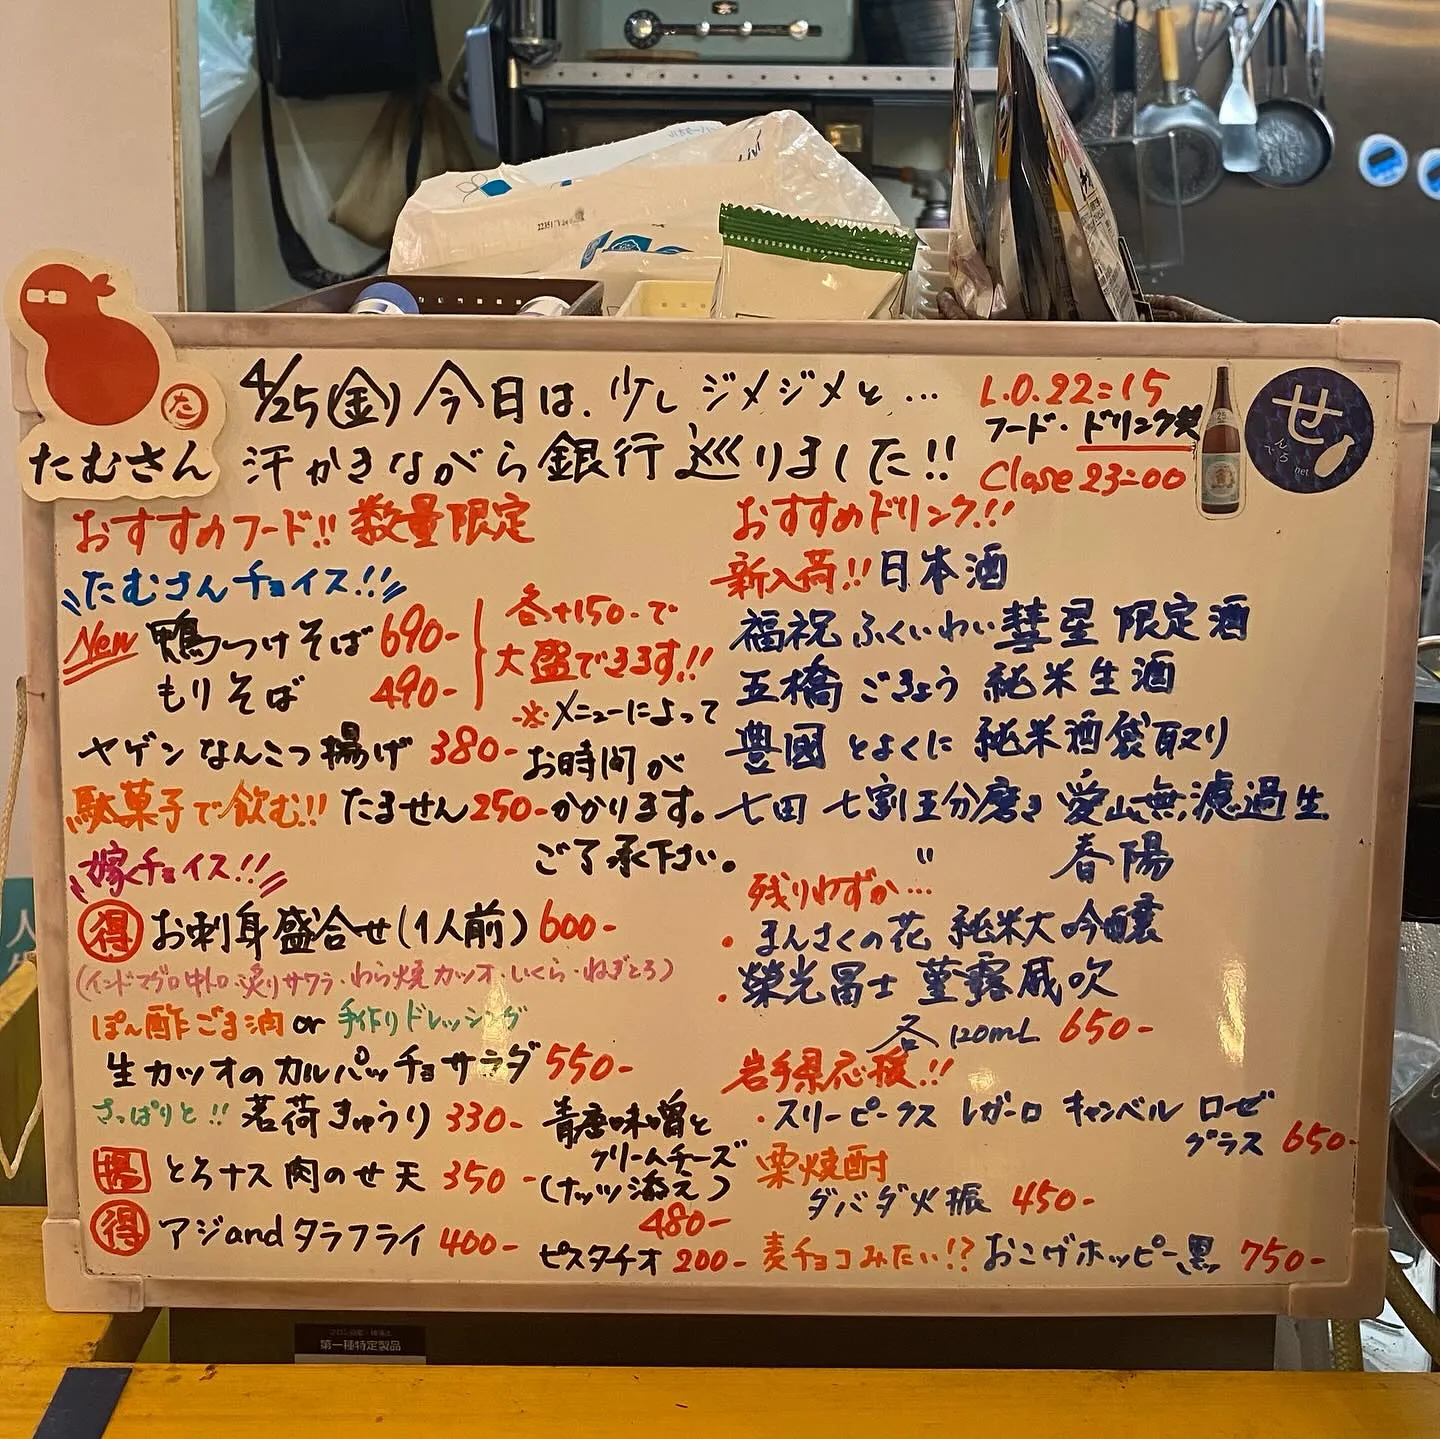 4/25(金)今日は、少しジメジメと…
汗かきながら銀行巡りました!!
L.O.22=15
フード・ドリンク共
Close 23=00
たむさん
た
せ
んべろ
net
おすすめフード!! 数量限定
たむさんチョイス!!
New 鴨つけそば 690-
もりそば 490-
各+150-で
大盛できます!!
ヤゲンなんこつ揚げ 380-
駄菓子で飲む!! たません250-
※メニューによって
お時間が
かかります。
ご了承下さい。
嫁チョイス!!
得 お刺身盛合せ(1人前) 600-
(インドマグロ中トロ・炙りサワラ・わら焼カツオ・いくら・ねぎとろ)
ぽん酢ごま油 or 手作りドレッシング
生カツオのカルパッチョサラダ 550-
さっぱりと!! 茗荷きゅうり 330-
とろナス肉のせ天 350-
得 アジandタラフライ 400-
青唐味噌と
クリームチーズ
(ナッツ添え)
480-
ピスタチオ 200-
おすすめドリンク!!
新入荷!! 日本酒
福祝 ふくいわい 彗星 限定酒
五橋 ごきょう 純米生酒
豊國 とよくに 純米酒袋取り
七田 七割五分磨き 愛山無濾過生
〃 春陽
残りわずか…
・まんさくの花 純米大吟醸
・榮光冨士 菫露威吹
各120mL 650-
岩手県応援!!
・スリーピークス レガーロ キャンベル ロゼ
グラス 650-
栗焼酎
ダバダ火振 450-
麦チョコみたい!? おこげホッピー黒 750-
第一種特定製品